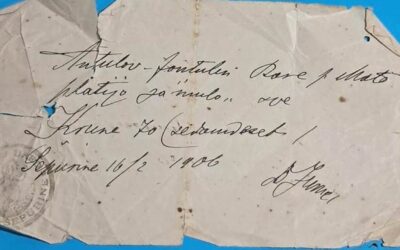 Antulov-Fontulin Bare p Mato
platijo za mulo sve
Krune 70 (sedamdeset /
Sepurine 16/2 1906
SEPURINE